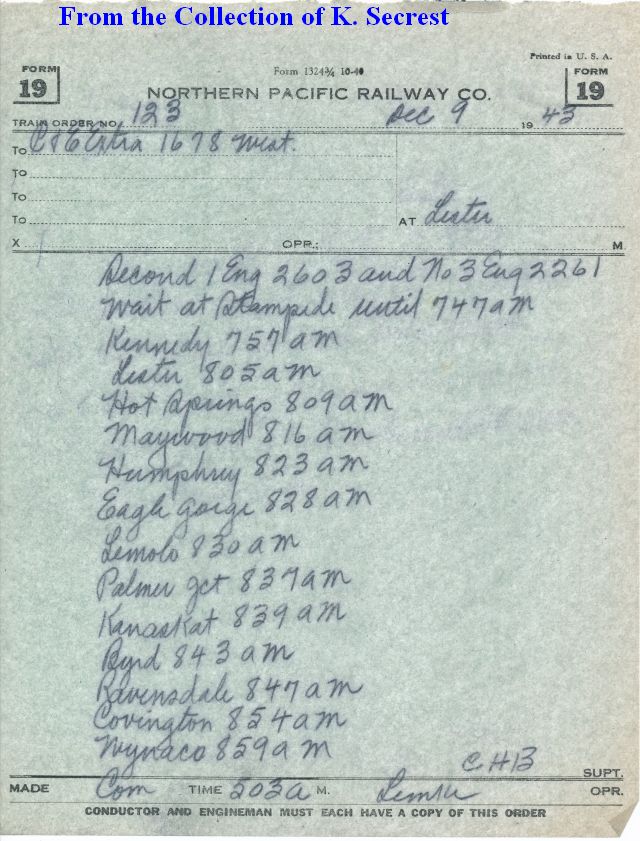 From the Collection of K. Secrest
Printed in U. S. A.
FORM 19
Form 1324¾ 10-40
FORM 19
NORTHERN PACIFIC RAILWAY CO.
TRAIN ORDER NO. 123 Dec 9 1943
To C&E Extra 1678 West.
To
To
To
AT Lester
X OPR.; M
Second 1 Eng 2603 and No 3 Eng 2261
Wait at Stampede until 747am
Kennedy 757am
Lester 805am
Hot Springs 809am
Maywood 816am
Humphrey 823am
Eagle Gorge 828am
Lemolo 830am
Palmer Jct 837am
Kanaskat 839am
Byrd 843am
Ravensdale 847am
Covington 854am
Wynaco 859am
CHB SUPT.
MADE Com TIME 503a M. OPR.
CONDUCTOR AND ENGINEMAN MUST EACH HAVE A COPY OF THIS ORDER